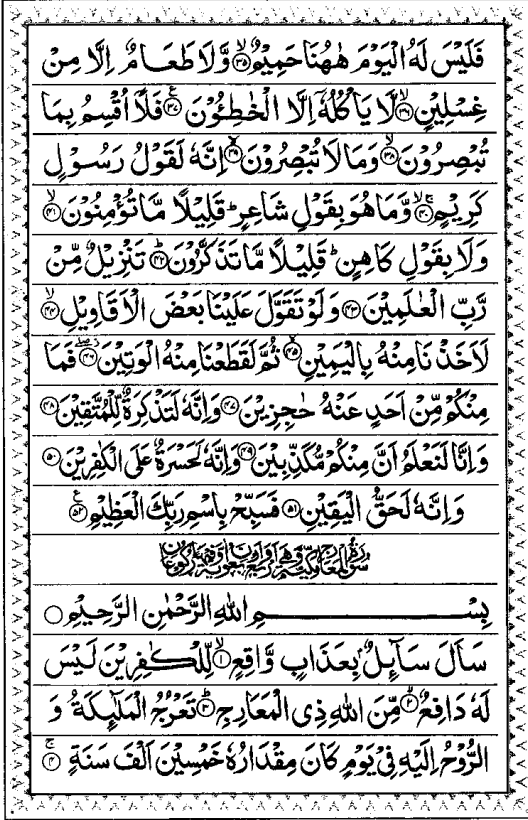 فَلَيْسَ لَهُ الْيَوْمَ هٰهُنَا حَمِيْمٌ ۙ﴿۳۵﴾ وَّلَا طَعَامٌ اِلَّا مِنْ
غِسْلِيْنٍ ۙ﴿۳۶﴾ لَّا يَاْكُلُهٗۤ اِلَّا الْخٰطِـُٔوْنَ ﴿۳۷﴾ۧ فَلَاۤ اُقْسِمُ بِمَا
تُبْصِرُوْنَ ۙ﴿۳۸﴾ وَمَا لَا تُبْصِرُوْنَ ۙ﴿۳۹﴾ اِنَّهٗ لَقَوْلُ رَسُوْلٍ
كَرِيْمٍ ۚۙ﴿۴۰﴾ وَّمَا هُوَ بِقَوْلِ شَاعِرٍ ؕ قَلِيْلًا مَّا تُؤْمِنُوْنَ ۙ﴿۴۱﴾
وَلَا بِقَوْلِ كَاهِنٍ ؕ قَلِيْلًا مَّا تَذَكَّرُوْنَ ؕ﴿۴۲﴾ تَنْزِيْلٌ مِّنْ
رَّبِّ الْعٰلَمِيْنَ ﴿۴۳﴾ وَلَوْ تَقَوَّلَ عَلَيْنَا بَعْضَ الْاَقَاوِيْلِ ۙ﴿۴۴﴾
لَاَخَذْنَا مِنْهُ بِالْيَمِيْنِ ۙ﴿۴۵﴾ ثُمَّ لَقَطَعْنَا مِنْهُ الْوَتِيْنَ ﴿۴۶﴾ فَمَا
مِنْكُمْ مِّنْ اَحَدٍ عَنْهُ حٰجِزِيْنَ ﴿۴۷﴾ وَاِنَّهٗ لَتَذْكِرَةٌ لِّلْمُتَّقِيْنَ ﴿۴۸﴾
وَاِنَّا لَنَعْلَمُ اَنَّ مِنْكُمْ مُّكَذِّبِيْنَ ﴿۴۹﴾ وَاِنَّهٗ لَحَسْرَةٌ عَلَى الْكٰفِرِيْنَ ﴿۵۰﴾
وَاِنَّهٗ لَحَقُّ الْيَقِيْنِ ﴿۵۱﴾ فَسَبِّحْ بِاسْمِ رَبِّكَ الْعَظِيْمِ ﴿۵۲﴾ۧ
بِسْمِ اللهِ الرَّحْمٰنِ الرَّحِيْمِ ○
سَاَلَ سَآئِلٌۢ بِعَذَابٍ وَّاقِعٍ ۙ﴿۱﴾ لِّلْكٰفِرِيْنَ لَيْسَ
لَهٗ دَافِعٌ ۙ﴿۲﴾ مِّنَ اللهِ ذِى الْمَعَارِجِ ؕ﴿۳﴾ تَعْرُجُ الْمَلٰٓئِكَةُ وَ
الرُّوْحُ اِلَيْهِ فِىْ يَوْمٍ كَانَ مِقْدَارُهٗ خَمْسِيْنَ اَلْفَ سَنَةٍ ۚ﴿۴﴾